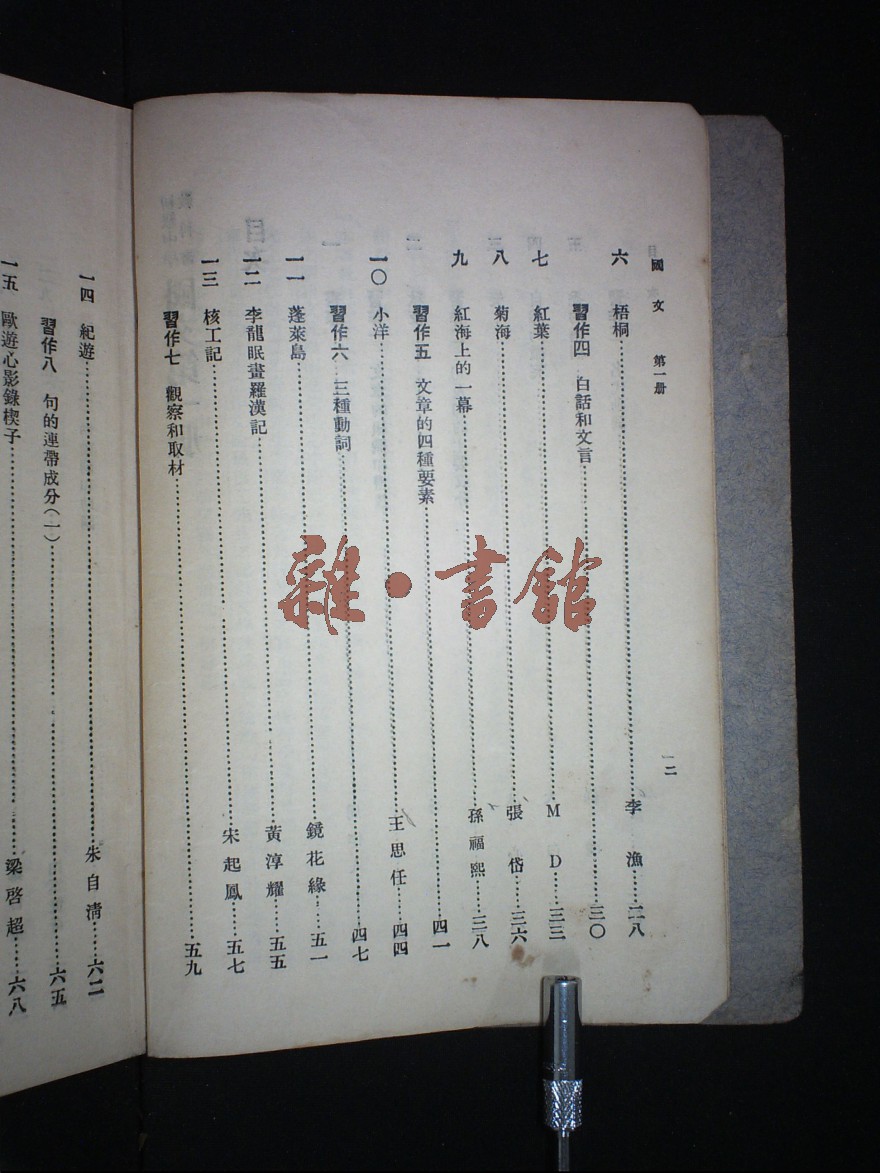 國文 第一册
一二
六 梧桐 李漁 二八
習作四 白話和文言 三〇
七 紅葉 M D 三三
八 菊海 張岱 三六
九 紅海上的一幕 孫福熙 三八
習作五 文章的四種要素 四一
一〇 小洋 王思任 四四
習作六 三種動詞 四七
一一 蓬萊島 鏡花緣 五一
一二 李龍眠畫羅漢記 黃淳耀 五五
一三 核工記 宋起鳳 五七
習作七 觀察和取材 五九
一四 紀遊 朱自清 六二
習作八 句的連帶成分(一) 六五
一五 歐遊心影錄楔子 梁啓超 六八
雜·書館